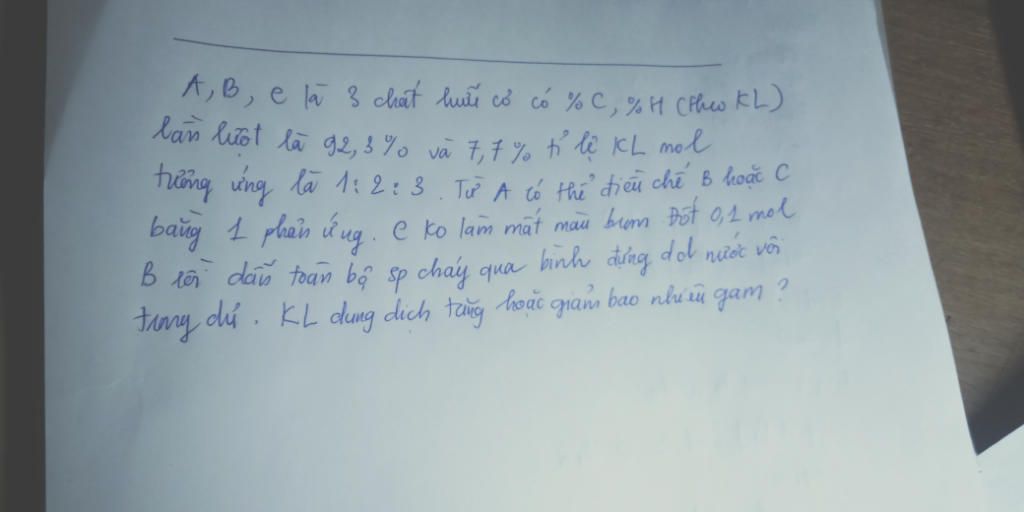 A, B, C là 3 chất hữu cơ có %C, %H (theo KL)
lần lượt là 92,3% và 7,7% tỉ lệ KL mol
tương ứng là 1:2:3. Từ A có thể điều chế B hoặc C
bằng 1 phản ứng. C ko làm mất màu brom. Đốt 0,1 mol
B rồi dẫn toàn bộ sp cháy qua bình đựng dd nước vôi
trong dư. KL dung dịch tăng hoặc giảm bao nhiêu gam?